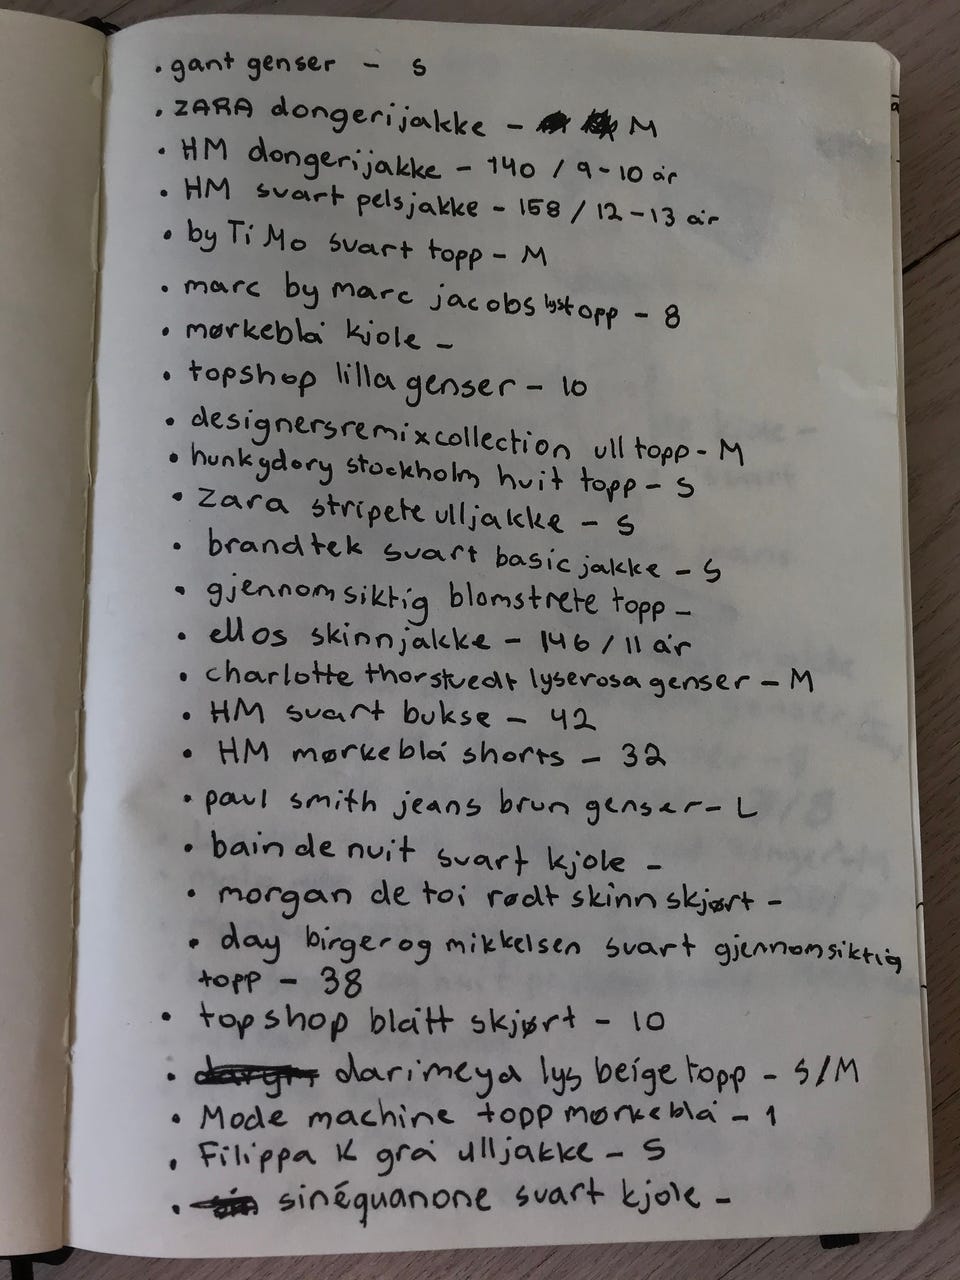 • gant genser - S
• ZARA dongerijakke - M
• HM dongerijakke - 140 / 9-10 år
• HM svart pelsjakke - 158 / 12-13 år
• by TiMo svart topp - M
• marc by marc jacobs lyst topp - 8
• mørkeblå kjole -
• topshop lilla genser - 10
• designersremixcollection ull topp - M
• hunkydory stockholm hvit topp - S
• zara stripete ulljakke - S
• brandtek svart basic jakke - S
• gjennomsiktig blomstrete topp -
• ellos skinnjakke - 146 / 11 år
• charlotte thorstvedt lyserosa genser - M
• HM svart bukse - 42
• HM mørkeblå shorts - 32
• paul smith jeans brun genser - L
• bain de nuit svart kjole -
• morgan de toi rødt skinn skjørt -
• day birger og mikkelsen svart gjennomsiktig
topp - 38
• topshop blått skjørt - 10
• darimeya lys beige topp - S/M
• Mode machine topp mørkeblå - 1
• Filippa K grå ulljakke - S
• sinéquanone svart kjole -